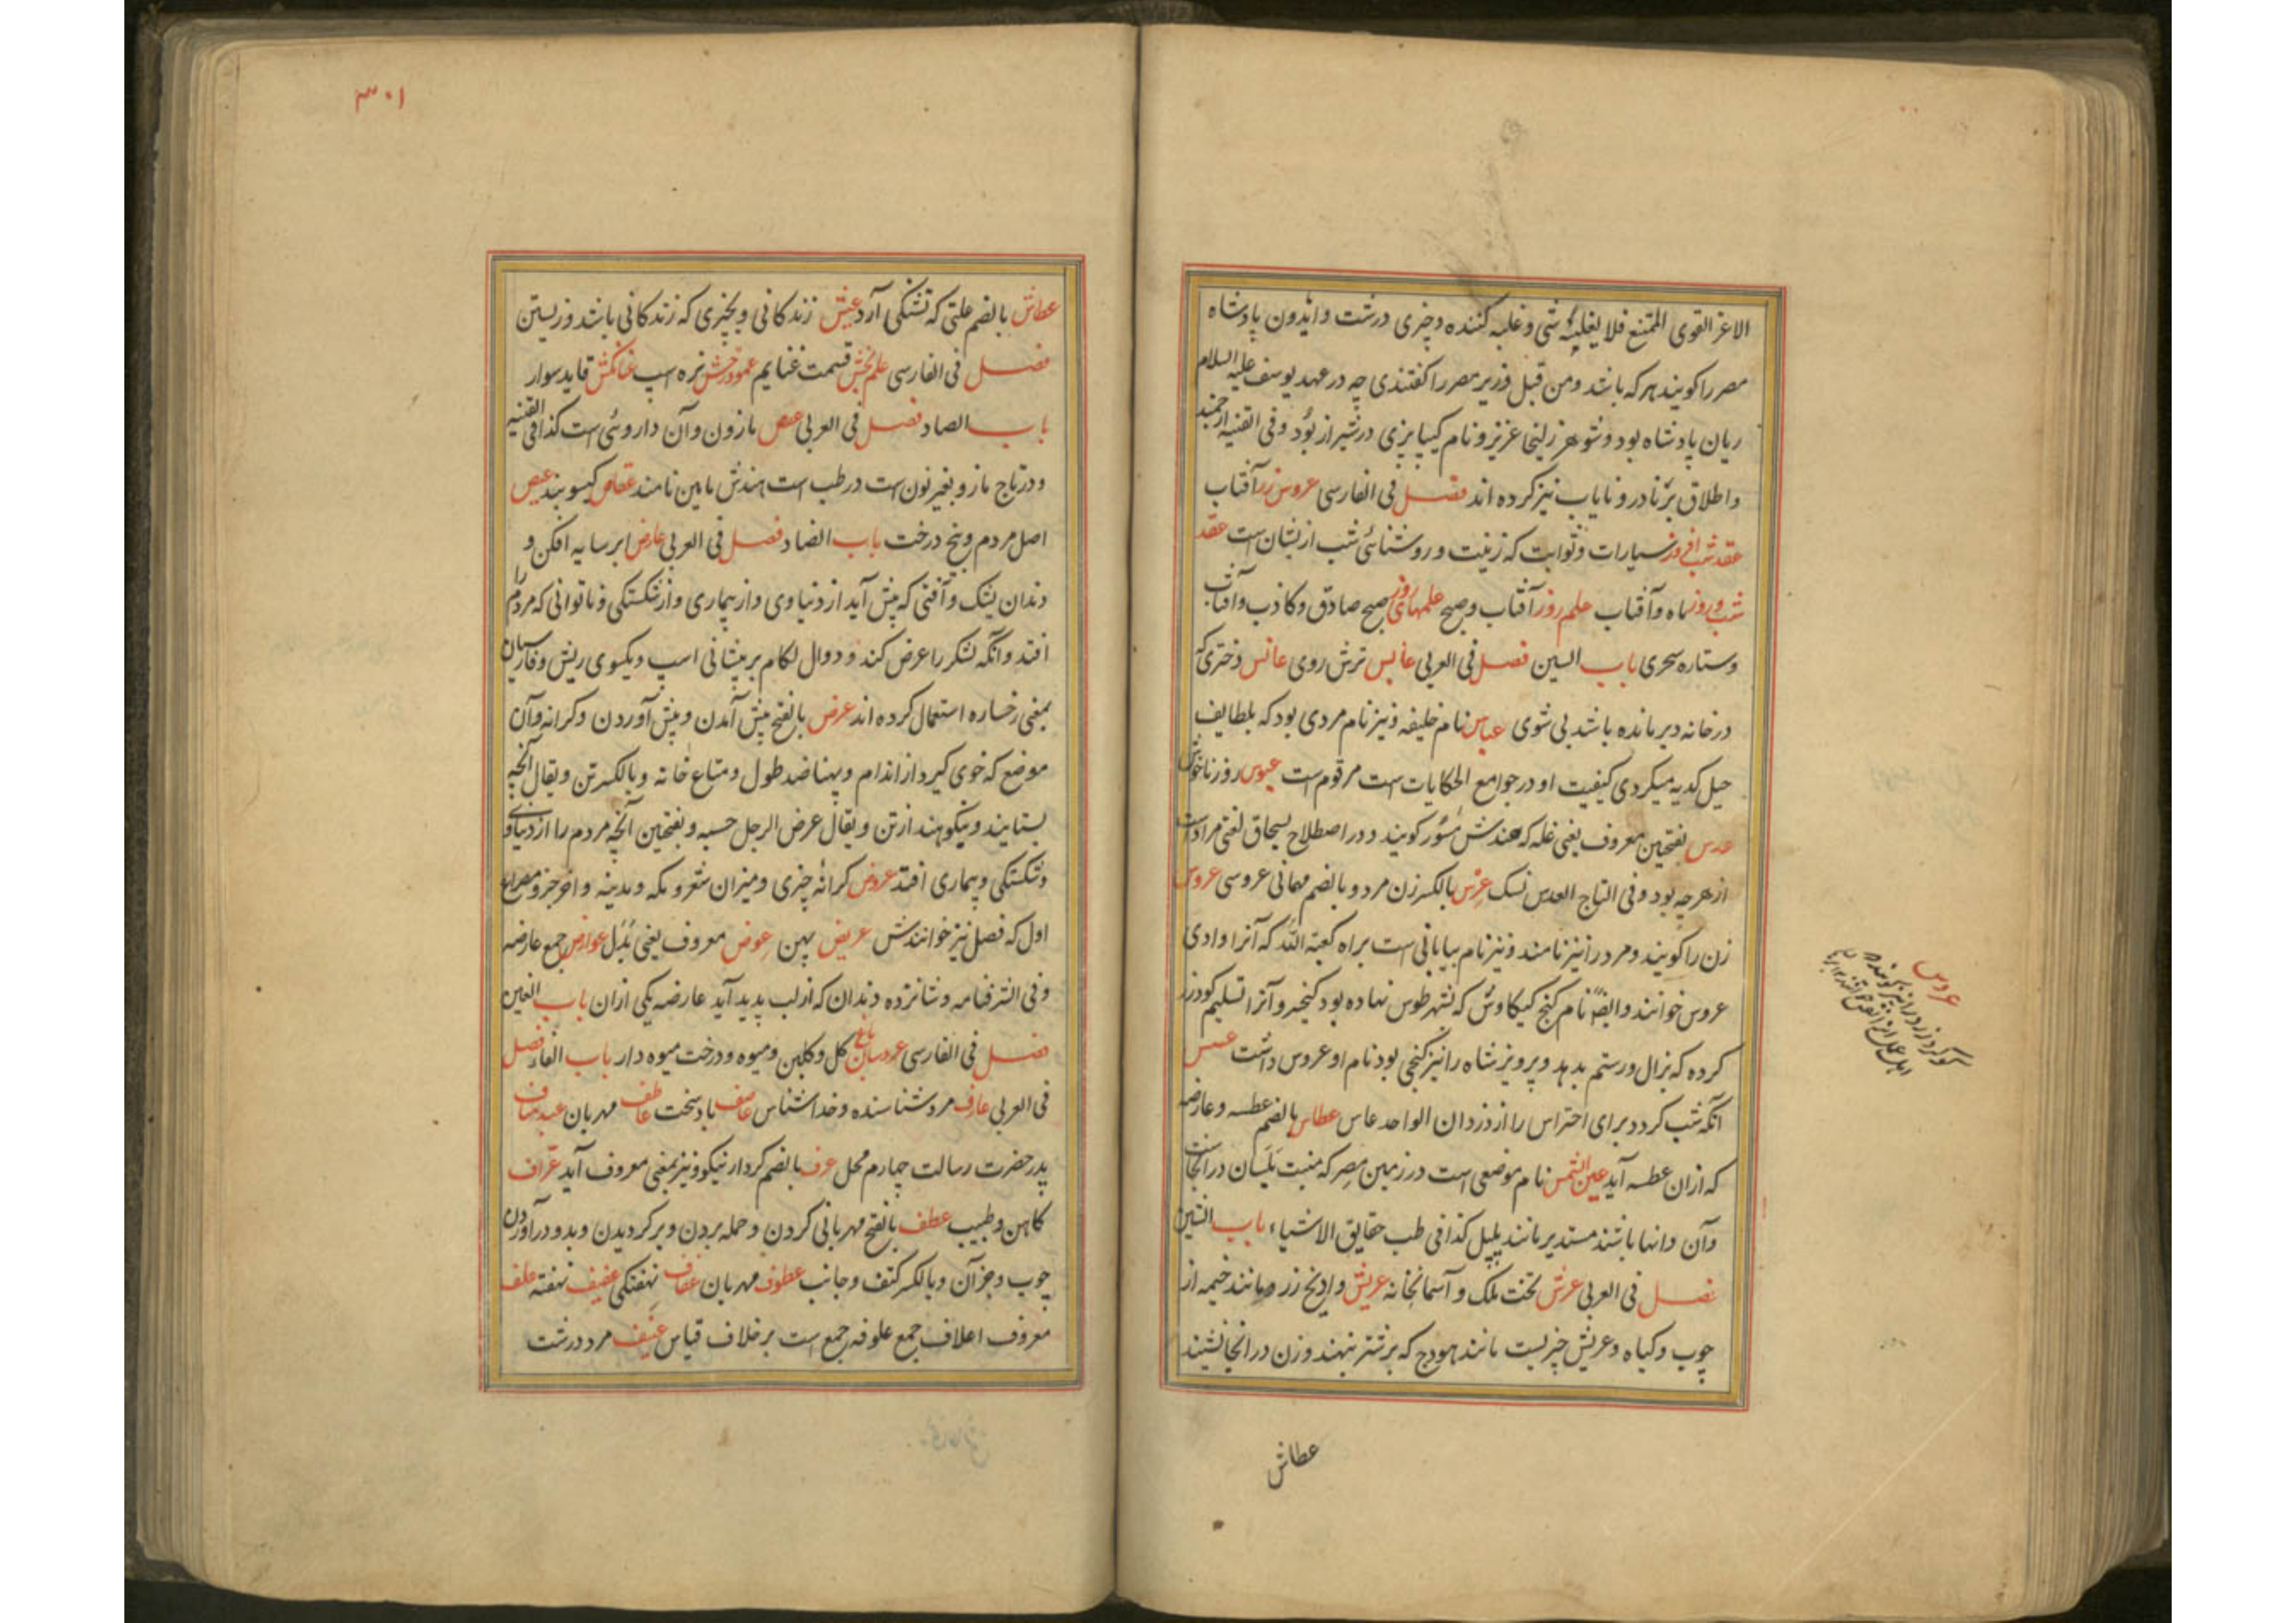 الاعز القوی الممتنع فلا یغلبه شئ و غلبه کننده و چیزی درشت و ایدون پادشاه
مصر را کویند هر که باشد و من قبل وزیر مصر را کفتندی چه در عهد یوسف علیه السلام
ریان پادشاه بود و شوهر زلیخا عزیز و نام کیپا پزی در شیراز بود و فی القنیه ارجمند
و اطلاق بر نادر و نایاب نیز کرده اند فصل فی الفارسی عروس زر آفتاب
عقد شب افروز سیارات و ثوابت که زینت و روشنائی شب ازیشان است عقد
شب و روز ماه و آفتاب علم روز آفتاب و صبح علمهای روز صبح صادق و کاذب و آفتاب
و ستاره سحری باب السین فصل فی العربی عابس ترش روی عانس دختری که
در خانه دیر مانده باشد بی شوی عباس نام خلیفه و نیز نام مردی بود که بلطایف
حیل کدیه میکردی کیفیت او در جوامع الحکایات است مرقوم است عبوس روز ناخوش
عدس بفتحین معروف یعنی غله که هندش مسور کویند و در اصطلاح لغتی مراد است
از هر چه بود و فی التاج العدس نسک عرس بالکسر زن مرد و بالضم مهمانی عروسی عروس
زن را کویند و مرد را نیز نامند و نیز نام بیابانی است براه کعبة الله که آنرا وادی
عروس خوانند و ایضا نام کنج کیکاوس که بشهر طوس نهاده بود کیخسرو آنرا تسلیم کودرز
کرده که بزال و رستم بدهد و پرویز شاه را نیز کنجی بود نام او عروس داشت عسس
آنکه شب کردد برای احتراس را از دزدان الواحد عاس عطاس بالضم عطسه و عارضه
که ازان عطسه آید عین الشمس نام موضعی است در زمین مصر که منبت بلسان در آنجاست
و آن دانها باشند مستدیر مانند پلپل کذا فی طب حقایق الاشیاء باب الشین
فصل فی العربی عرش تخت ملک و آسمانخانه عریش وادیج رز و مانند خیمه از
چوب و کیاه و عریش چیزیست مانند هودج که بر شتر نهند و زن در آنجا نشیند
عطاش
عروس
۳۰۱
عطاش بالضم علتی که تشنکی آرد عیش زندکانی و بچیزی که زندکانی باشد و زیستن
فصل فی الفارسی علم بخش قسمت غنایم عمود رخش نره اسپ عنانکش قاید سوار
باب الصاد فصل فی العربی عفص مازون و آن داروئی است کذا فی القنیه
و در تاج مازو بغیر نون است در طب است هندش ماین نامند عقاص کیسوبند عیص
اصل مردم و بیخ درخت باب الضاد فصل فی العربی عارض ابر سایه افکن و
دندان یشک و آفتی که پیش آید از دنیاوی و از بیماری و از شکستکی و ناتوانی که مردم را
افتد و آنکه لشکر را عرض کند و دوال لکام بر پیشانی اسپ و یکسوی ریش و فارسیان
بمعنی رخساره استعمال کرده اند عرض بالفتح پیش آمدن و پیش آوردن و کرانه و آن
موضع که خوی کیرد از اندام و پهنا ضد طول و متاع خانه و بالکسر تن و یقال آنچه
بستایند و بنکوهند از تن و یقال عرض الرجل حسبه و بفتحین آنچه مردم را از دنیاوی
و شکستکی و بیماری افتد عروض کرانهٔ چیزی و میزان شعر و مکه و مدینه و آخر جزو مصراع
اول که فصل نیز خوانندش عریض پهن عوض معروف یعنی بدل عوارض جمع عارضه
و فی الشرفنامه و شانزده دندان که از لب پدید آید عارضه یکی ازان باب الغین
فصل فی الفارسی عروسان باغ کل و کلبن و میوه و درخت میوه دار باب الفاء فصل
فی العربی عارف مرد شناسنده و خداشناس عاصف باد سخت عاطف مهربان عبد مناف
پدر حضرت رسالت چهارم محل عرف بالضم کردار نیکو و نیز بمعنی معروف آید عراف
کاهن و طبیب عطف بالفتح مهربانی کردن و حمله بردن و برکردیدن و بدو درآوردن
چوب و جز آن و بالکسر کتف و جانب عطوف مهربان عفاف نهفتکی عفیف نهفته علف
معروف اعلاف جمع علوفه جمع است برخلاف قیاس عنیف مرد درشت